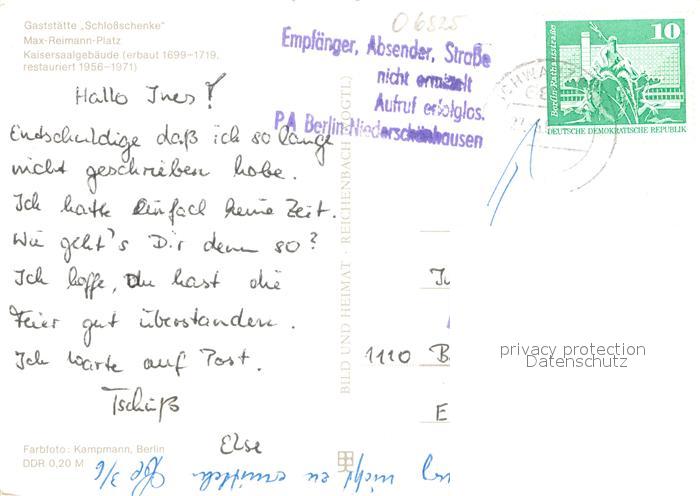 06825
Gaststätte „Schloßschenke"
Max-Reimann-Platz
Kaisersaalgebäude (erbaut 1699–1719,
restauriert 1956–1971)
Empfänger, Absender, Straße
nicht ermittelt
Aufruf erfolglos.
PA Berlin-Niederschönhausen
10
Berlin-Rathausstraße
DEUTSCHE DEMOKRATISCHE REPUBLIK
Hallo Ines!
Entschuldige daß ich so lange
nicht geschrieben habe.
Ich hatte einfach keine Zeit.
Wie geht's Dir denn so?
Ich hoffe, Du hast die
Feier gut überstanden.
Ich warte auf Post.
Tschüß
Else
BILD UND HEIMAT · REICHENBACH (VOGTL)
1110 B
E
privacy protection
Datenschutz
Farbfoto: Kampmann, Berlin
DDR 0,20 M
nicht zu ermitteln 3/6